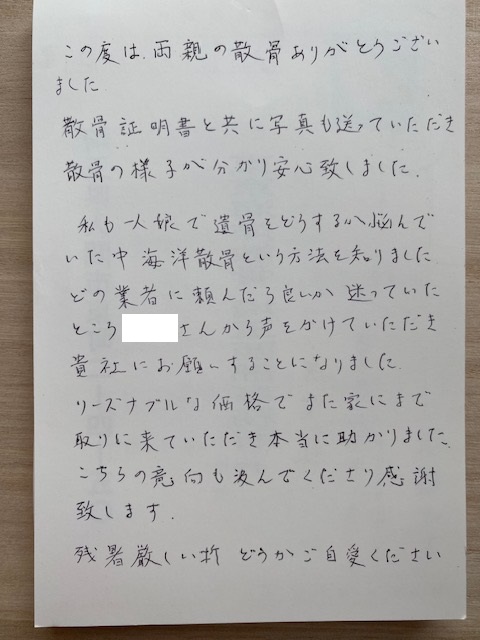 この度は、両親の散骨ありがとうござい
ました
散骨証明書と共に写真も送っていただき
散骨の様子が分かり安心致しました.
私も一人娘で遺骨をどうするか悩んで
いた中海洋散骨という方法を知りました
どの業者に頼んだら良いか迷っていた
ところ さんから声をかけていただき
貴社にお願いすることになりました.
リーズナブルな価格でまた家にまで
取りに来ていただき本当に助かりました.
こちらの意向も汲んでくださり感謝
致します.
残暑厳しい折 どうかご自愛ください